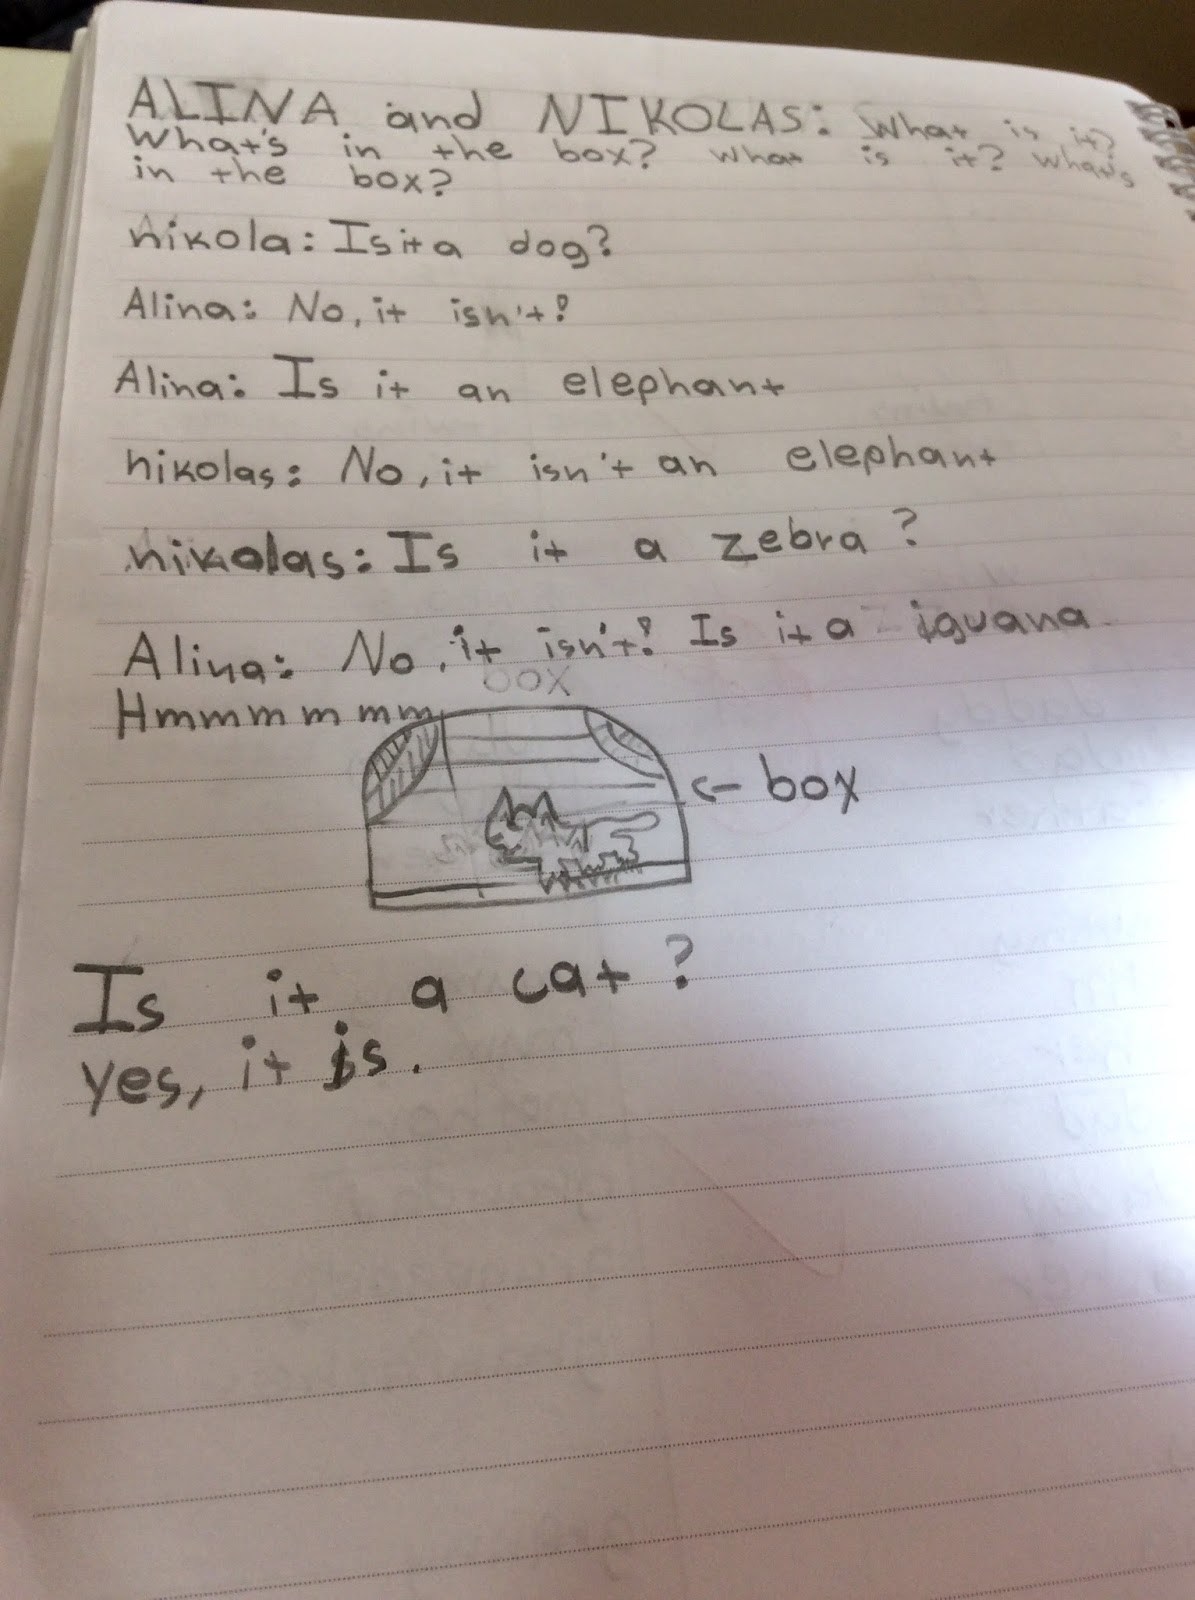 ALINA and NIKOLAS: What is it?
What's in the box? What is it? What's
in the box?
nikola: Is it a dog?
Alina: No, it isn't!
Alina: Is it an elephant
nikolas: No, it isn't an elephant
nikolas: Is it a zebra?
Alina: No, it isn't! Is it a iguana
box
Hmmmmmm
<- box
Is it a cat?
yes, it is.